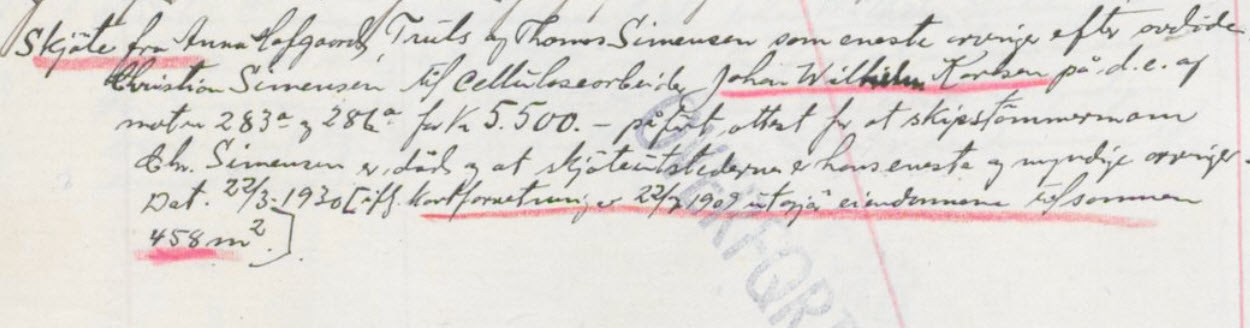 Skjöte fra Anna Hafgaard, Truls og Thomas Simensen som eneste arvinge efter avdöde
Christian Simensen til celluloosearbeider Johan Wilhelm Karlsen på d.e. af
matr 283a og 286a for Kr 5.500.- påfört attest for at skipstömmermann
Chr. Simensen er död og at skjöteutstederne er hans eneste og myndige arvinger.
Dat. 22/3-1930 [iflg. Kartforretninger 22/7 1909 utgjör eiendommene tilsammen
458 m2.]
OVERFØRT